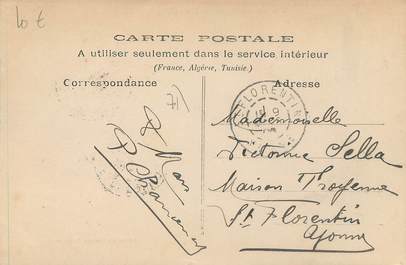 10 €
CARTE POSTALE
A utiliser seulement dans le service intérieur
(France, Algérie, Tunisie.)
Correspondance
Adresse
FLORENTIN
Mademoiselle
Victorine Sella
Maison Troyenne
St Florentin
Yonne